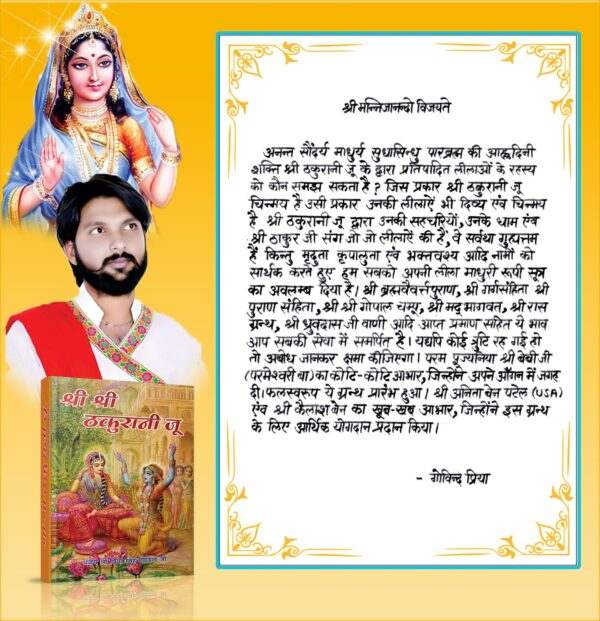 श्रीमन्निजानन्दो विजयते
अनन्त सौंदर्य माधुर्य सुधासिन्धु पारब्रह्म की आह्लादिनी
शक्ति श्री ठकुरानी जू के द्वारा प्रतिपादित लीलाओं के रहस्य
को कौन समझ सकता है ? जिस प्रकार श्री ठकुरानी जू
चिन्मय है उसी प्रकार उनकी लीलाऐं भी दिव्य एंव चिन्मय
है श्री ठकुरानी जू द्वारा उनकी सहचरियों, उनके धाम एंव
श्री ठाकुर जी संग जो जो लीलाऐं की हैं, वे सर्वथा गुह्यत्तम
हैं किन्तु मृदुता कृपालुता एंव भक्तवश्य आदि नामों को
सार्थक करते हुए हम सबको अपनी लीला माधुरी रूपी सूत्र
का अवलम्ब दिया है। श्री ब्रह्मवैवर्त्तपुराण, श्री गर्गसंहिता श्री
पुराण संहिता, श्री श्री गोपाल चम्पू, श्री मद् भागवत, श्री रास
ग्रन्थ, श्री ध्रुवदास जी वाणी आदि आप्त प्रमाण सहित ये भाव
आप सबकी सेवा में समर्पित है। यद्यपि कोई त्रुटि रह गई हो
तो अबोध जानकर क्षमा कीजिएगा। परम पूज्यनिया श्री बेबीजी
(परमेश्वरी बा) का कोटि-कोटि आभार, जिन्होंने अपने आँगन में जगह
दी। फलस्वरूप ये ग्रन्थ प्रारंभ हुआ। श्री अनिता बेन पटेल (USA)
एंव श्री कैलाश बेन का खूब-खूब आभार, जिन्होंने इस ग्रन्थ
के लिए आर्थिक योगदान प्रदान किया।
- गोविन्द प्रिया
श्री श्री
ठकुरानी जू